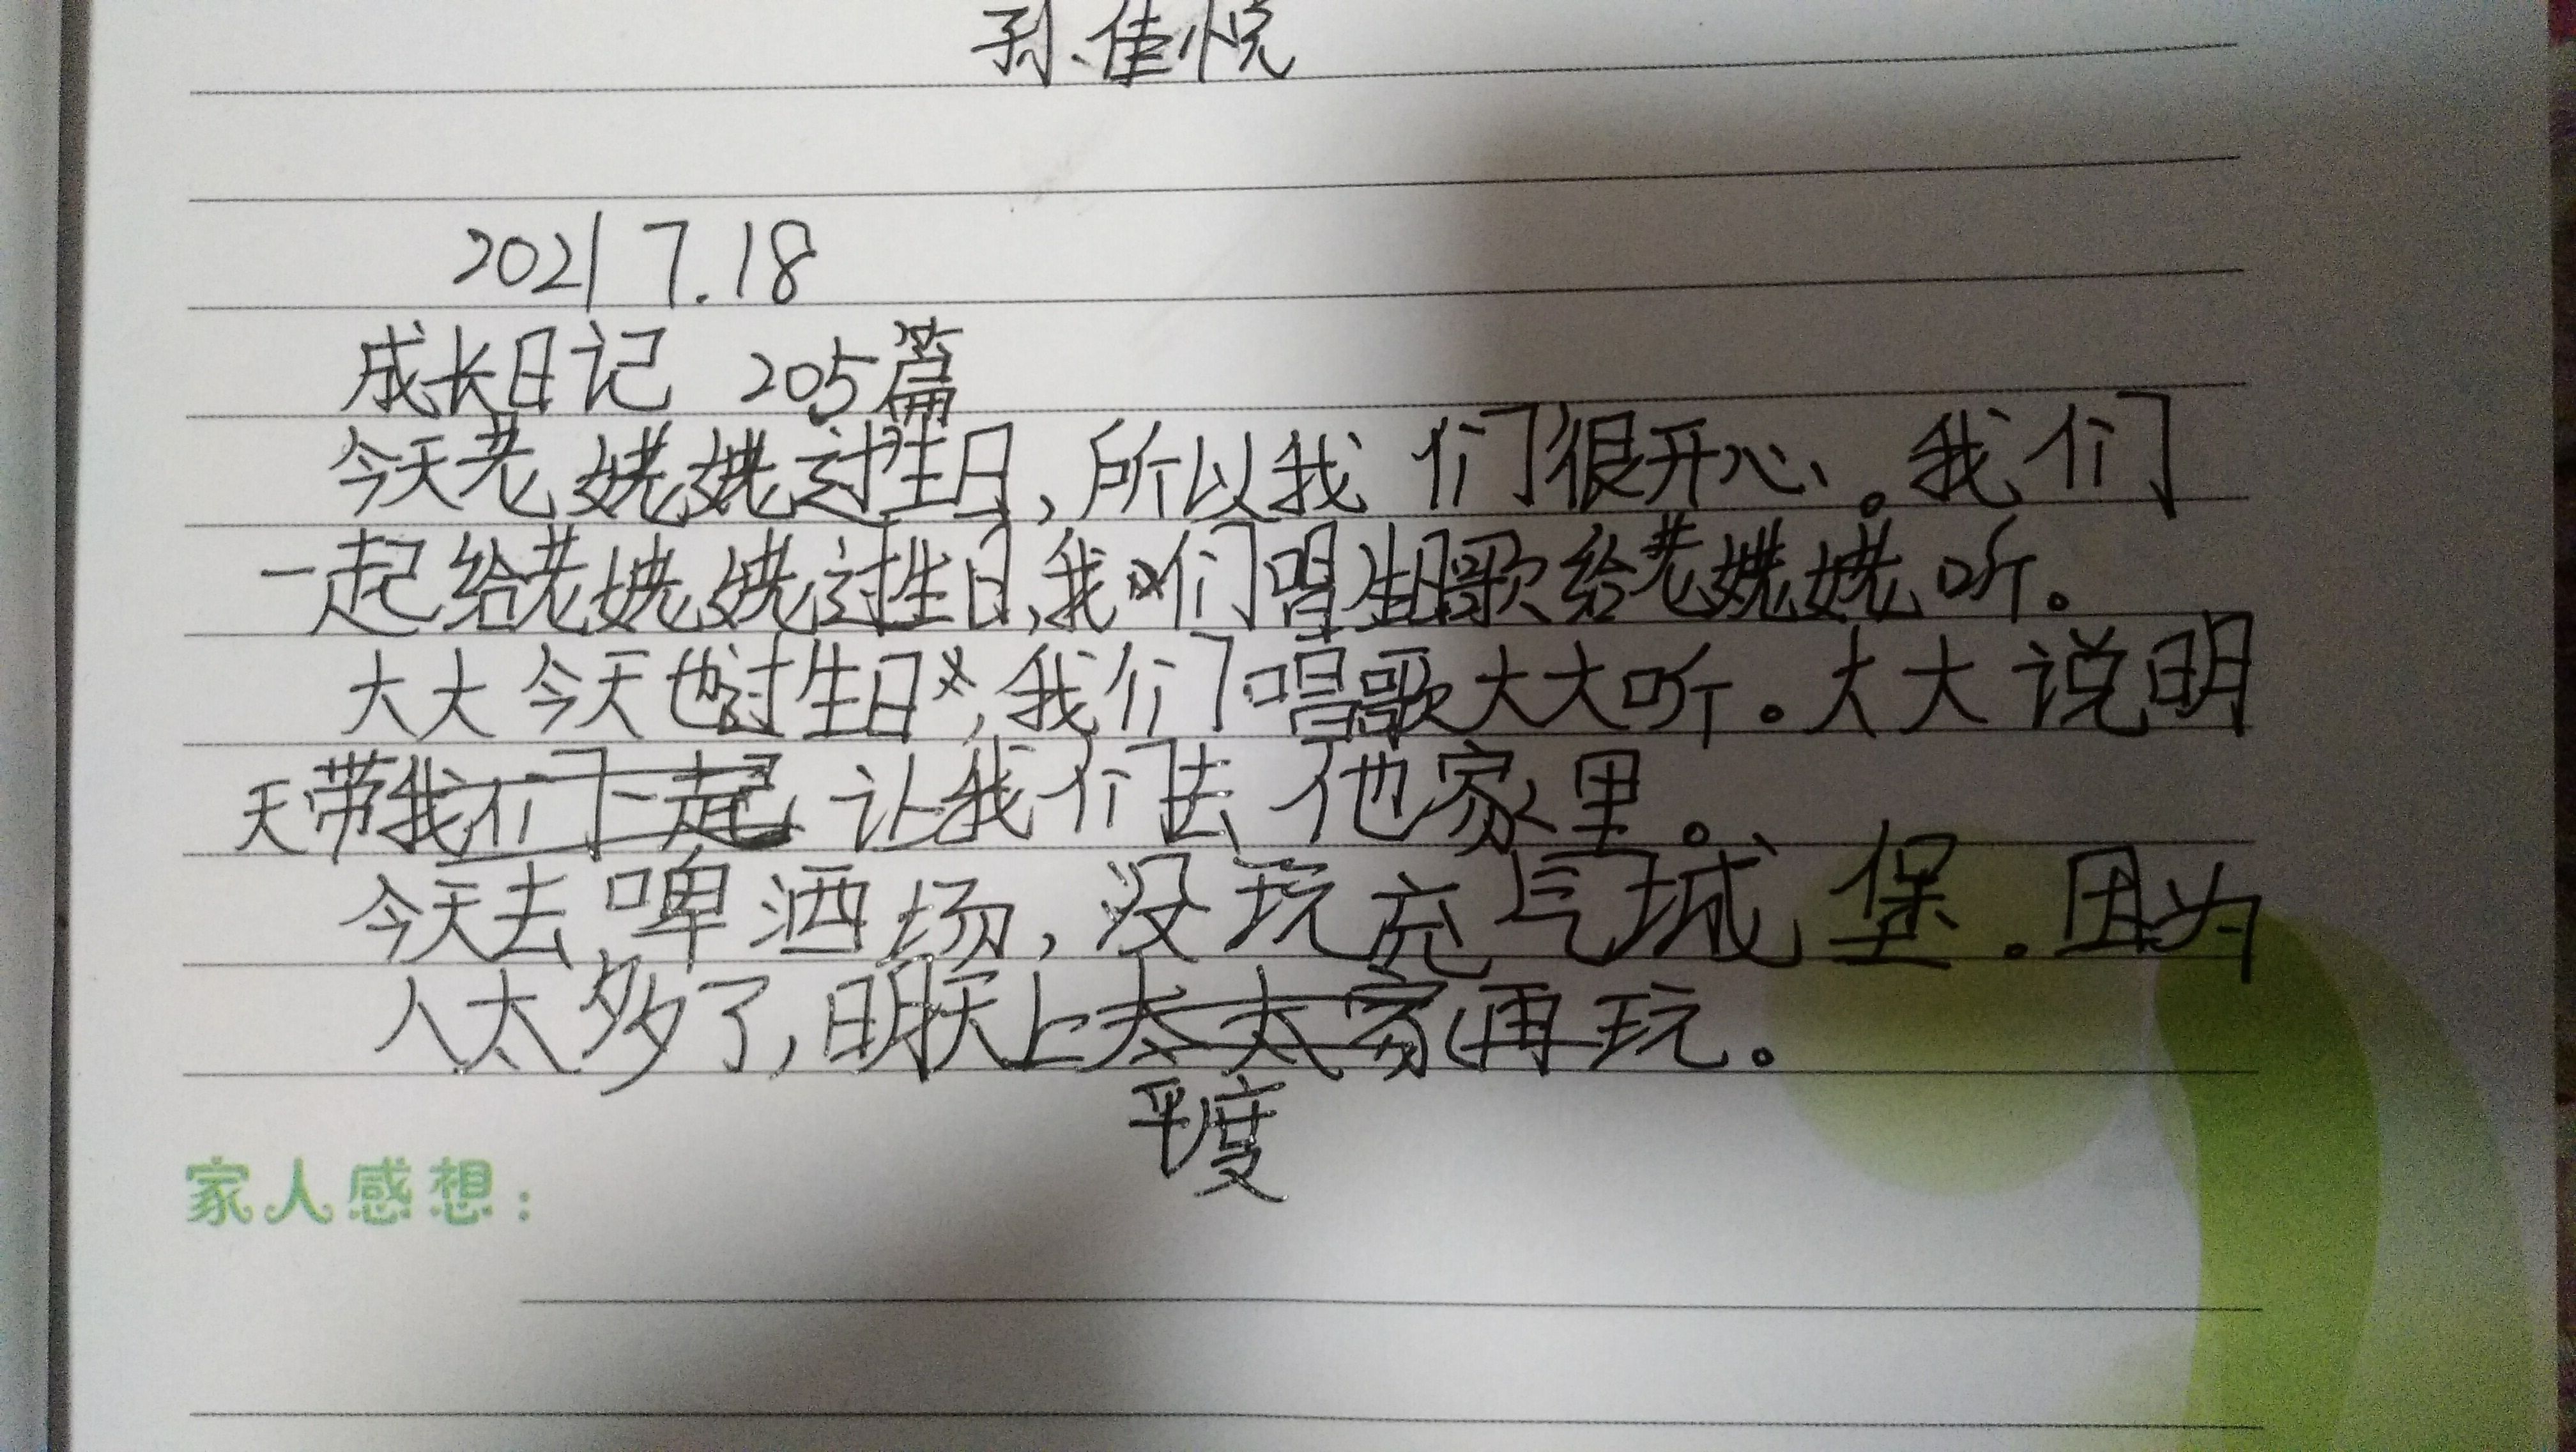 孙佳悦
2021 7.18
成长日记 205篇
今天老姥姥过生日,所以我们很开心。我们
一起给老姥姥过生日,我们唱生日歌给老姥姥听。
大大今天也过生日,我们唱歌大大听。大大说明
天带我们一起让我们去他家里。
今天去啤酒场,没玩充气城堡.因为
人太多了,明天上大大家再玩。
平度
家人感想: